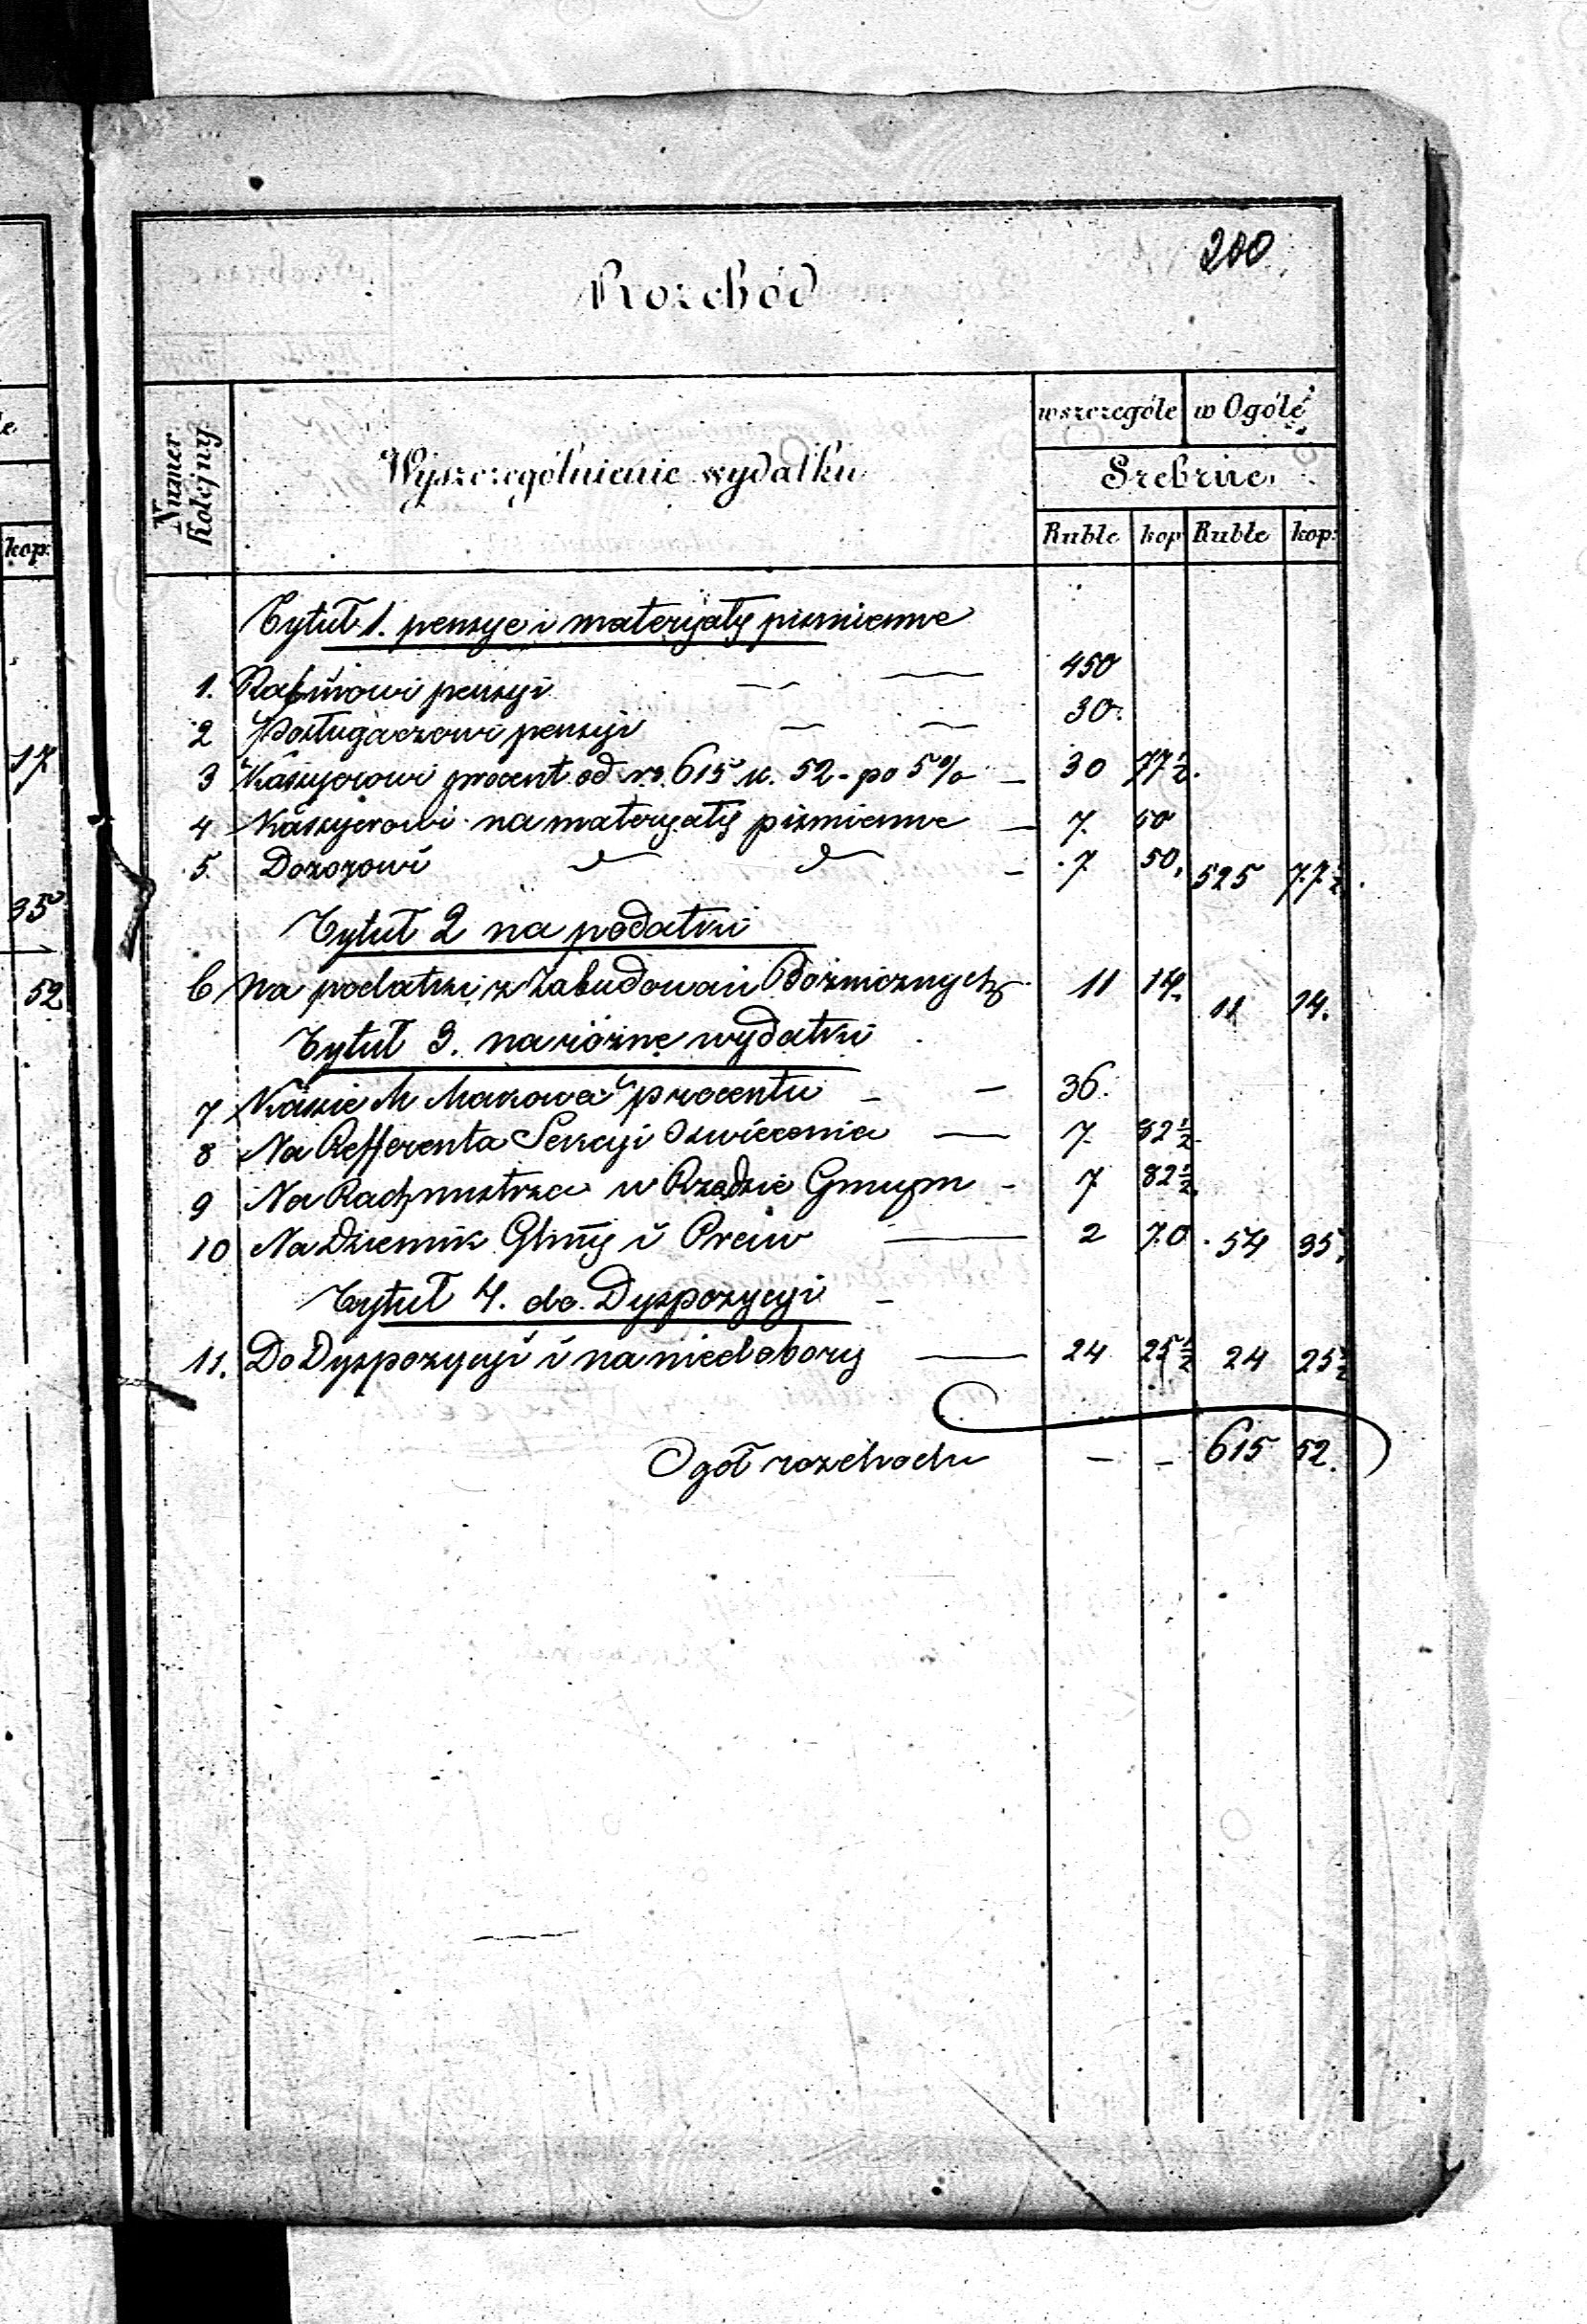 le
kop:
17
35
52
200
Rozchód
Numer Kolejny
Wyszczególnienie wydatku
wszczególe w Ogóle
Srebrne
Ruble kop Ruble kop:
Tytuł 1. pensye i materyały piśmienne
1. Rabinowi pensyi — — 450
2 Posługaczowi pensyi — — 30
3 Kassyerowi procent od rs. 615 k. 52 - po 5% — 30 77½
4 Kassyerowi na materyały piśmienne — 7. 50
5. Dozorowi — 7 50, 525 77½
Tytuł 2 na podatki
6 Na podatki z Zabudowań Bożnicznych 11 14. 11 14.
Tytuł 3. na rózne wydatki
7 Kassie M Makowa procentu — — 36.
8 Na Refferenta Sekcyi Oswiecenia — 7. 82½
9 Na Rachmistrza w Rządzie Gmuym - 7 82½
10 Na Dziennik Głny i Praw — 2 70. 54 35,
Tytuł 4. do Dyspozycyi —
11. Do Dyspozycyi i na niedobory — 24 25½ 24 25½
Ogół rozchodu — — 615 52.